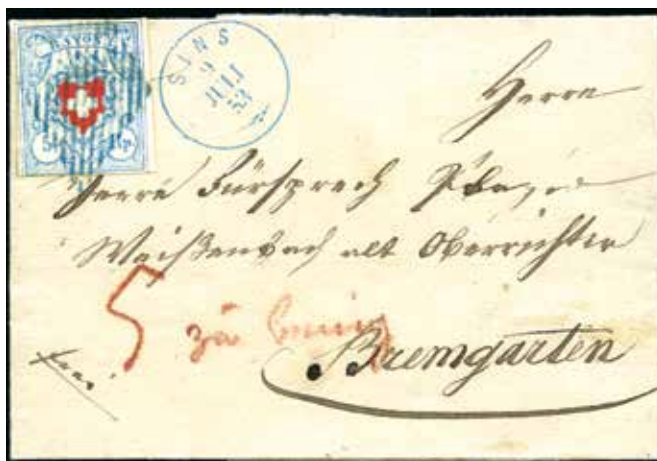 RAYON I
5 Rp.
SINS
9
JULI
53
Herrn
Herrn Fürsprech
Weißenbach alt Oberrichter
5 zu
Bremgarten